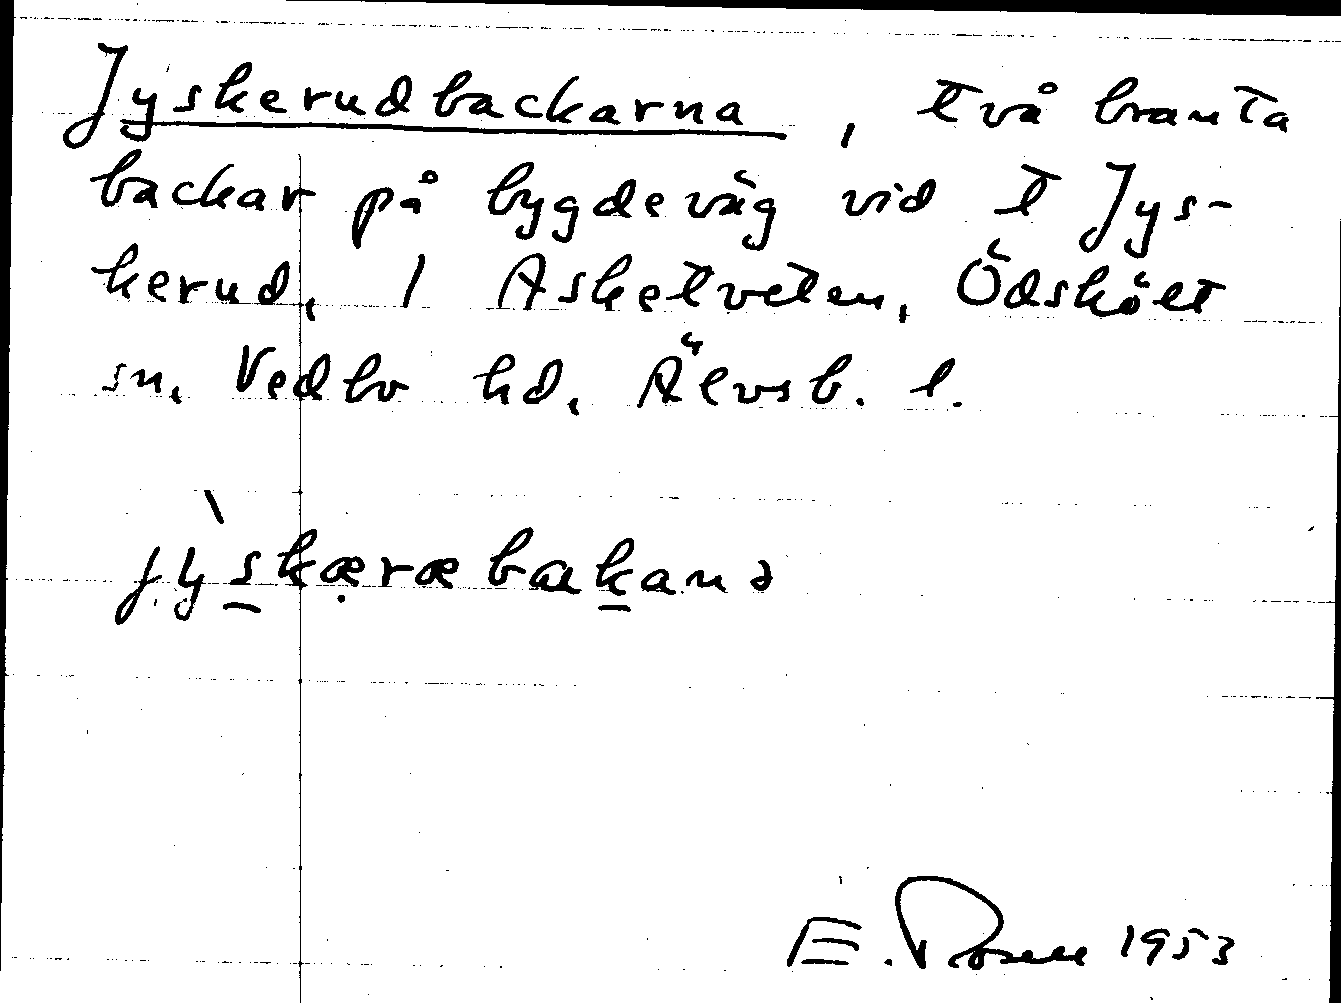 Jyskerudbackarna, två branta
backar på bygdeväg vid t Jys-
kerud, 1 Asketveten, Ödskölt
sn, Vedbo hd, Älvsb. l.
jỳ̱skærœbakanə
E. Rosell 1953